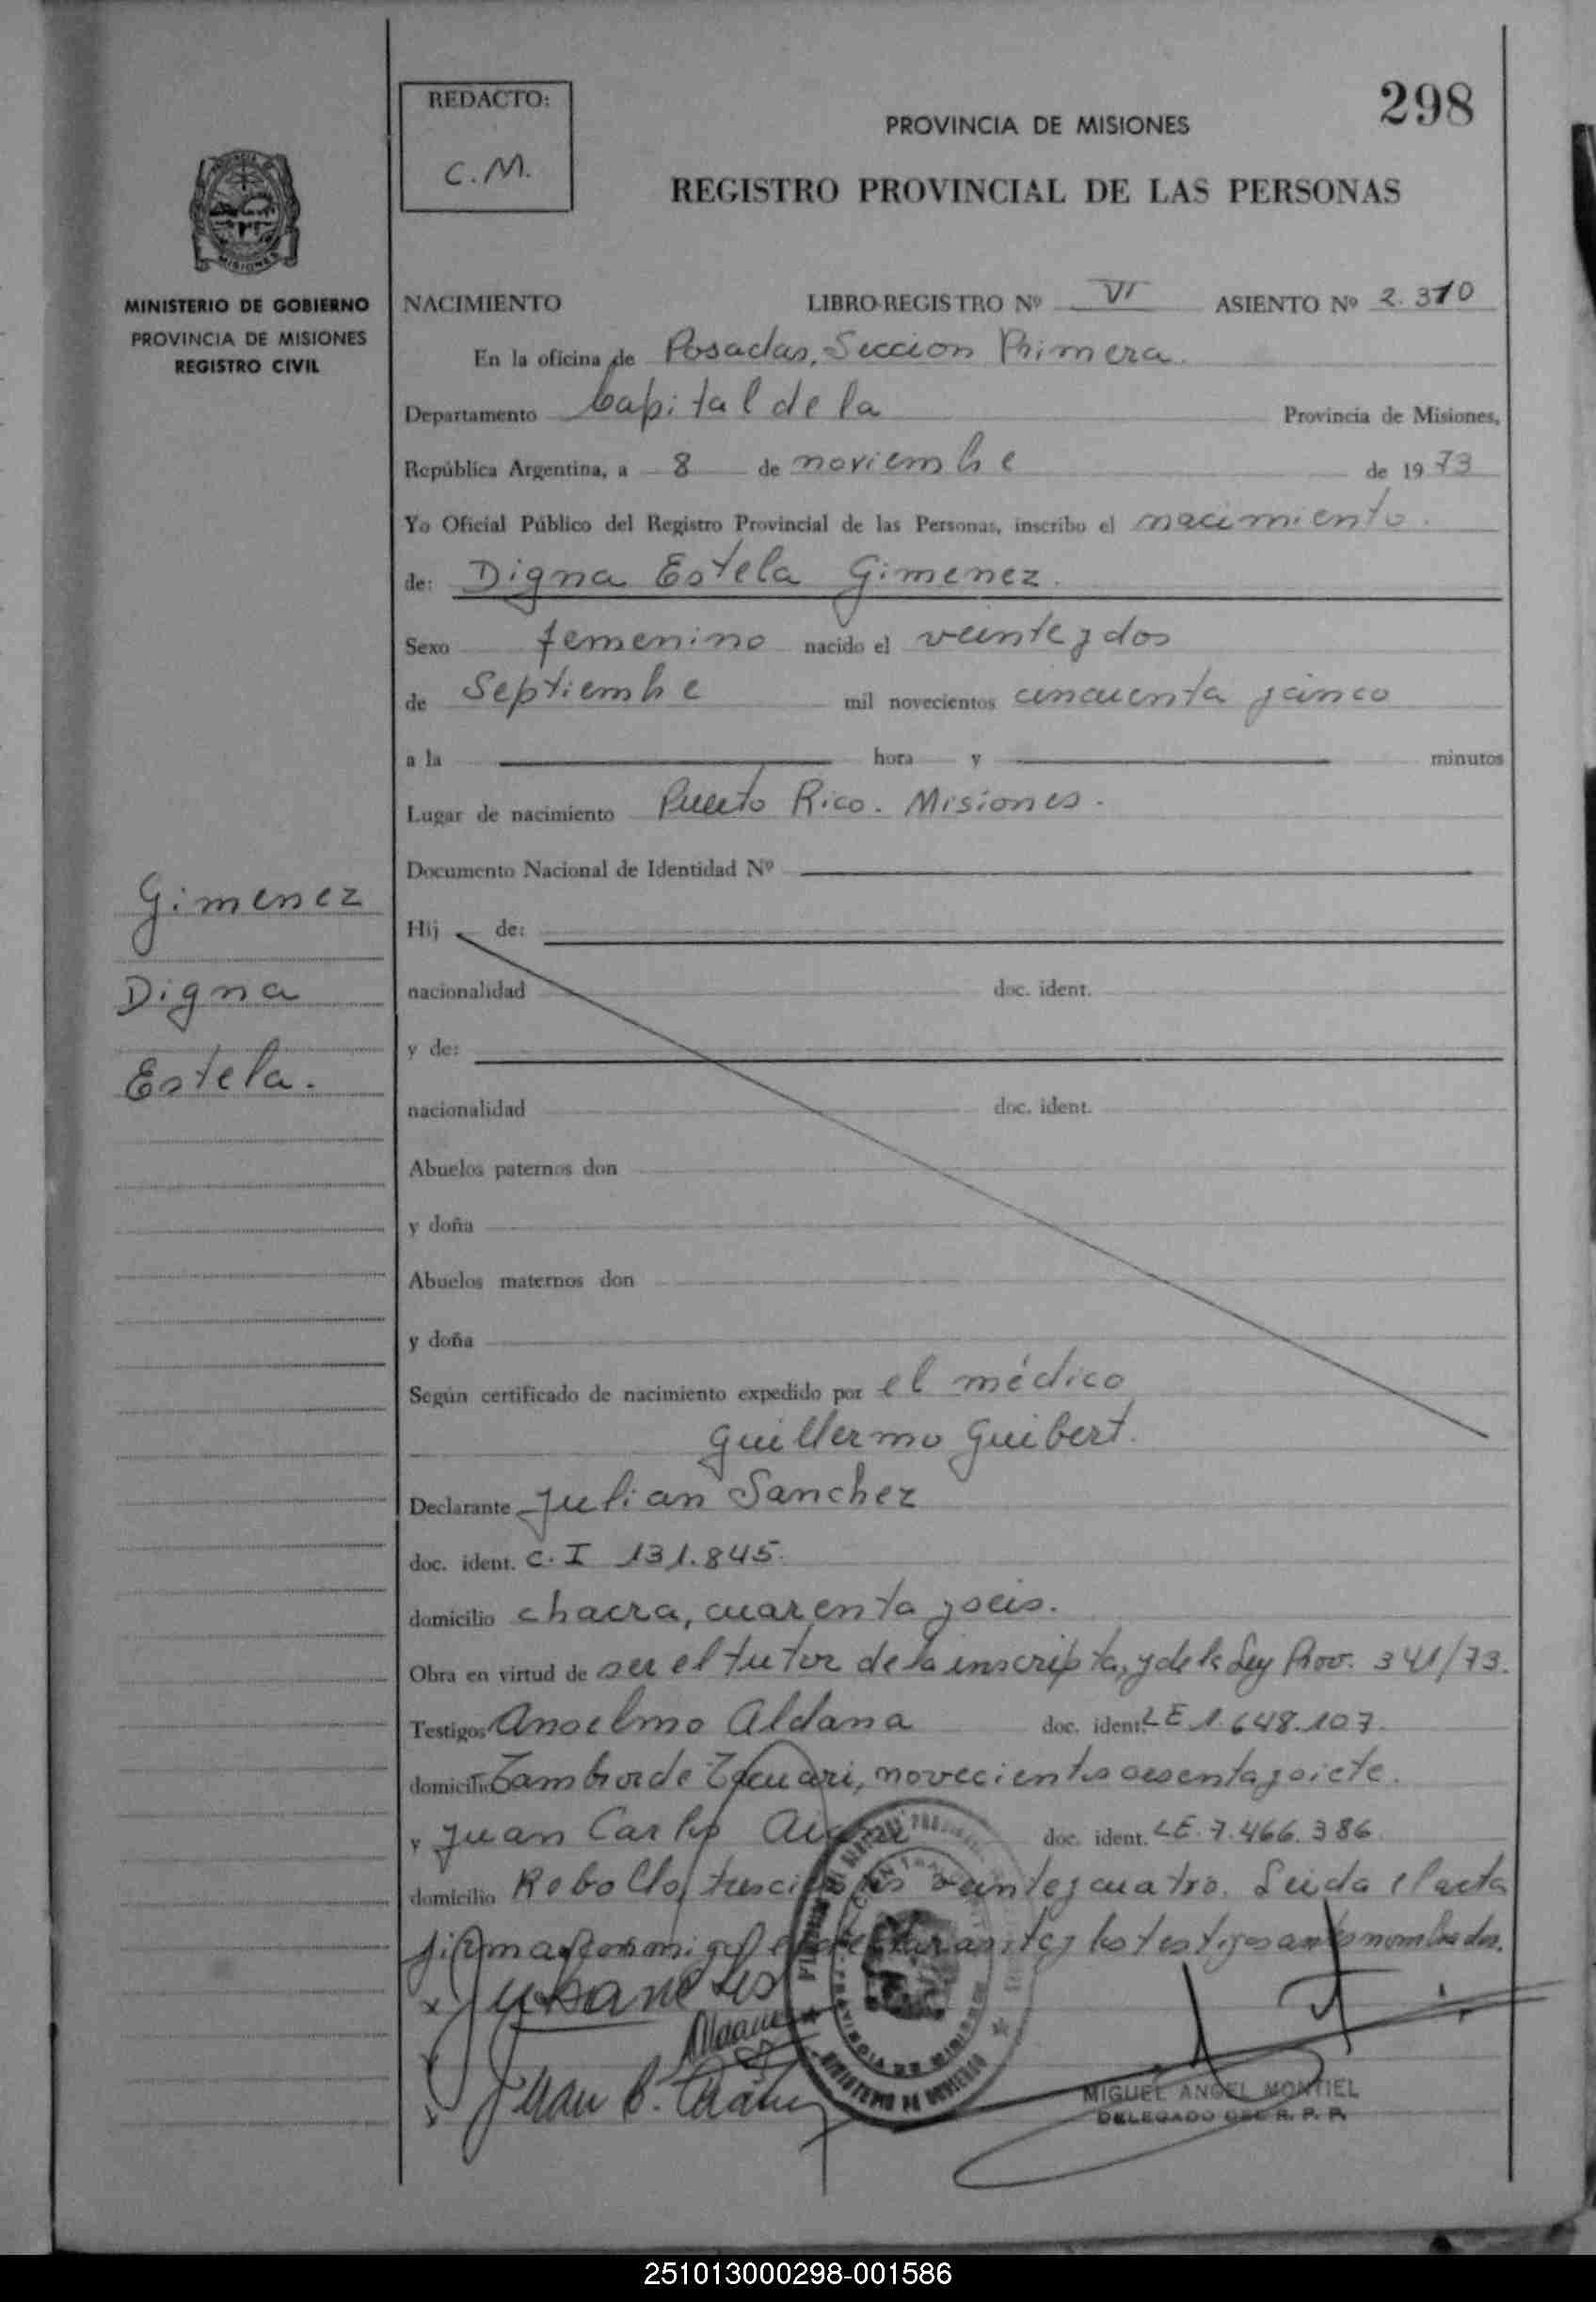 REDACTO:
C.M.
298
PROVINCIA DE MISIONES
REGISTRO PROVINCIAL DE LAS PERSONAS
MISIONES
MINISTERIO DE GOBIERNO
PROVINCIA DE MISIONES
REGISTRO CIVIL
NACIMIENTO LIBRO-REGISTRO Nº VI ASIENTO Nº 2.310
En la oficina de Posadas, Seccion Primera.
Departamento Capital de la Provincia de Misiones,
República Argentina, a 8 de noviembre de 1973
Yo Oficial Público del Registro Provincial de las Personas, inscribo el nacimiento.
de: Digna Estela Gimenez.
Sexo femenino nacido el veinte y dos
de Septiembre mil novecientos cincuenta y cinco
a la hora y minutos
Lugar de nacimiento Puerto Rico. Misiones.
Documento Nacional de Identidad Nº
Gimenez
Digna
Estela.
Hij de:
nacionalidad doc. ident.
y de:
nacionalidad doc. ident.
Abuelos paternos don
y doña
Abuelos maternos don
y doña
Según certificado de nacimiento expedido por el médico
Guillermo Guibert.
Declarante Julian Sanchez
doc. ident. C. I 131.845.
domicilio chacra, cuarenta y seis.
Obra en virtud de ser el tutor de la inscripta, y de la Ley Prov. 341/73.
Testigos Anselmo Aldana doc. ident. LE 1.648.107.
domicilio Tambor de Tacuari, novecientos sesenta y siete.
y Juan Carlos doc. ident. LE. 7.466.386
domicilio Rebollo, trescientos veinte y cuatro. Leida el acta
firman conmigo el declarante y los testigos antes nombrados.
MIGUEL ANGEL MONTIEL
DELEGADO DEL R. P. P.
251013000298-001586